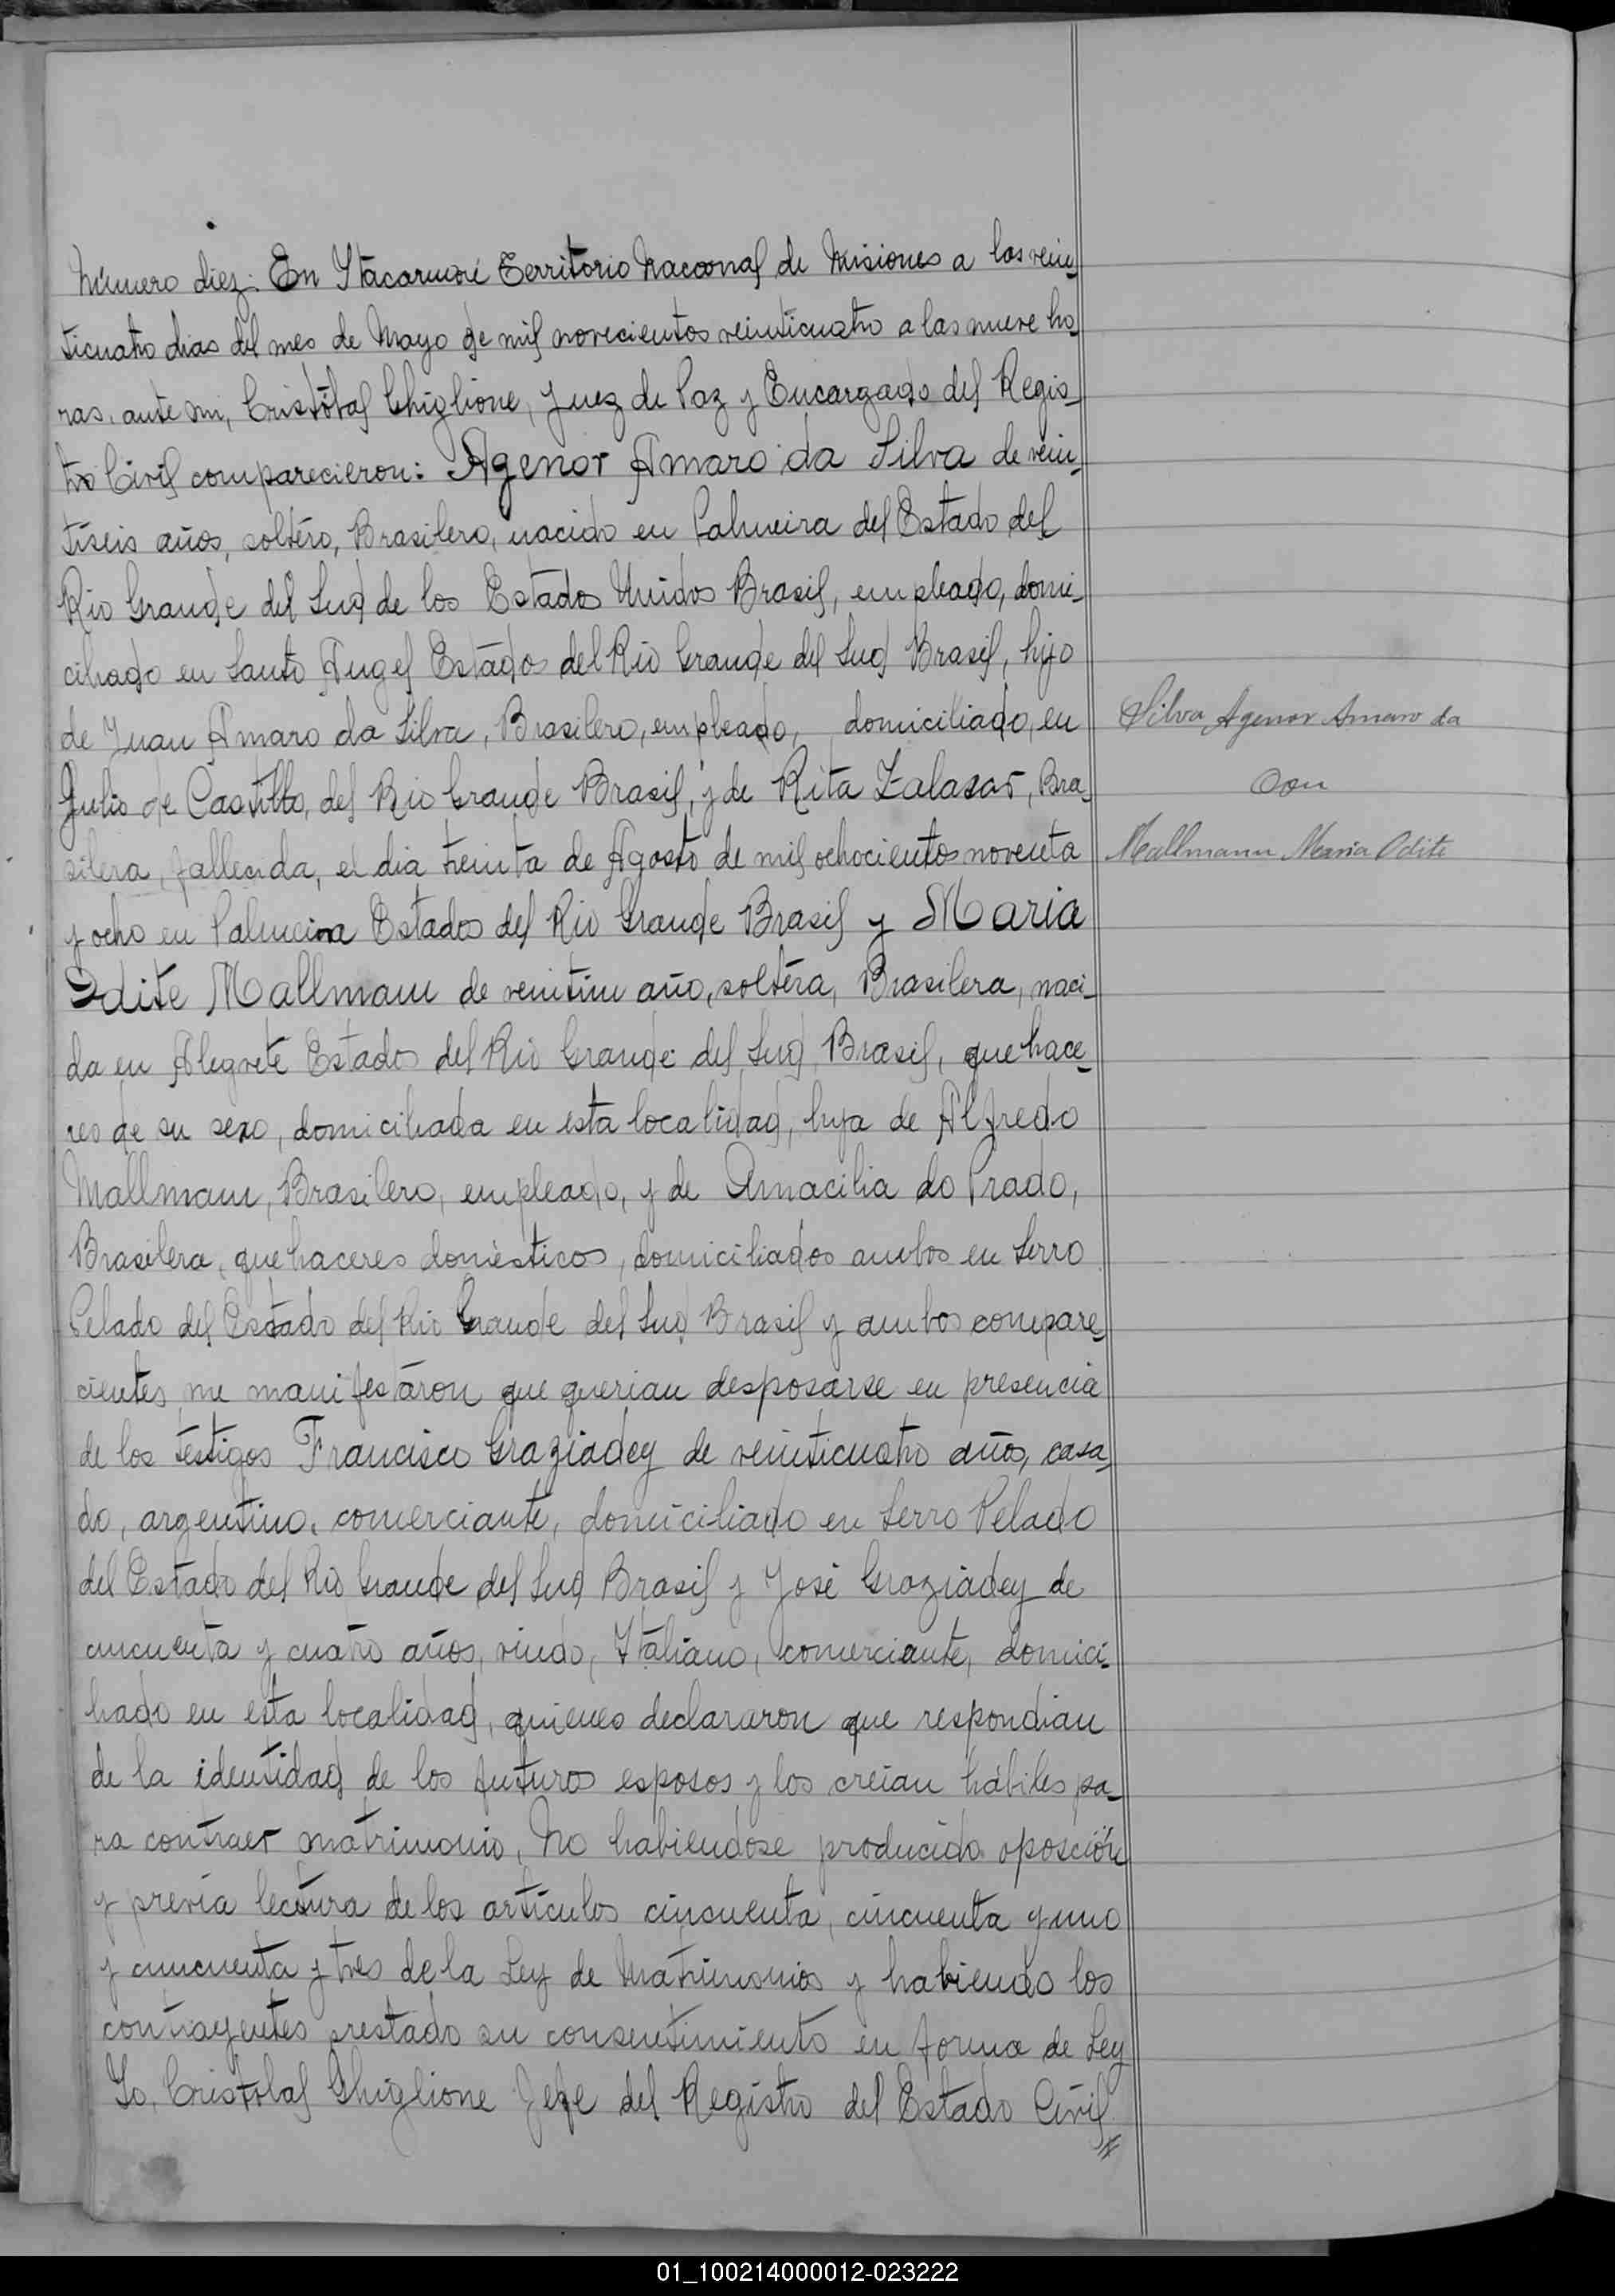 Número diez: En Itacaruaré Territorio Nacoonal de Misiones a los vein-
ticuatro dias del mes de Mayo de mil novecientos veinticuatro a las nueve ho-
ras, ante mi, Cristóbal Ghiglione, Juez de Paz y Encargado del Regis-
tro Civil comparecieron: Agenor Amaro da Silva de vein-
tiseis años, soltéro, Brasilero, nacido en Palmeira del Estado del
Rio Grande del Sud de los Estados Unidos Brasil, empleado, domi-
ciliado en Santo Angel Estados del Rio Grande del Sud Brasil, hijo
de Juan Amaro da Silva, Brasilero, empleado, domiciliado, en
Julio de Castillo, del Rio Grande Brasil, y de Rita Zalasar, Bra-
silera, fallecida, el dia treinta de Agosto de mil ochocientos noventa
y ocho en Palmeira Estados del Rio Grande Brasil y Maria
Odite Mallmam de veintiun año, soltéra, Brasilera, naci-
da en Alegrete Estados del Rio Grande del Sud Brasil, que hace-
res de su sexo, domiciliada en esta localidad, hija de Alfredo
Mallmam, Brasilero, empleado, y de Amacilia do Prado,
Brasilera, que haceres domésticos, domiciliados ambos en Serro
Pelado del Estado del Rio Grande del Sud Brasil y ambos compare-
cientes me manifestáron que querian desposarse en presencia
de los testigos Francisco Graziadey de veinticuatro años, casa-
do, argentino, comerciante, domiciliado en Serro Pelado
del Estado del Rio Grande del Sud Brasil y José Graziadey de
cincuenta y cuatro años, viudo, Italiano, comerciante, domici-
liado en esta localidad, quienes declararon que respondian
de la identidad de los futuros esposos y los creian hábiles pa-
ra contraer matrimonio, No habiendose producido oposción
y previa lectura de los artículos cincuenta, cincuenta y uno
y cincuenta y tres de la Ley de Matrimonios y habiendo los
contrayentes prestado su consentimiento en forma de Ley
Yo, Cristobal Ghiglione Jefe del Registro del Estado Civil
Silva Agenor Amaro da
Con
Mallmann Maria Odite
01_100214000012-023222